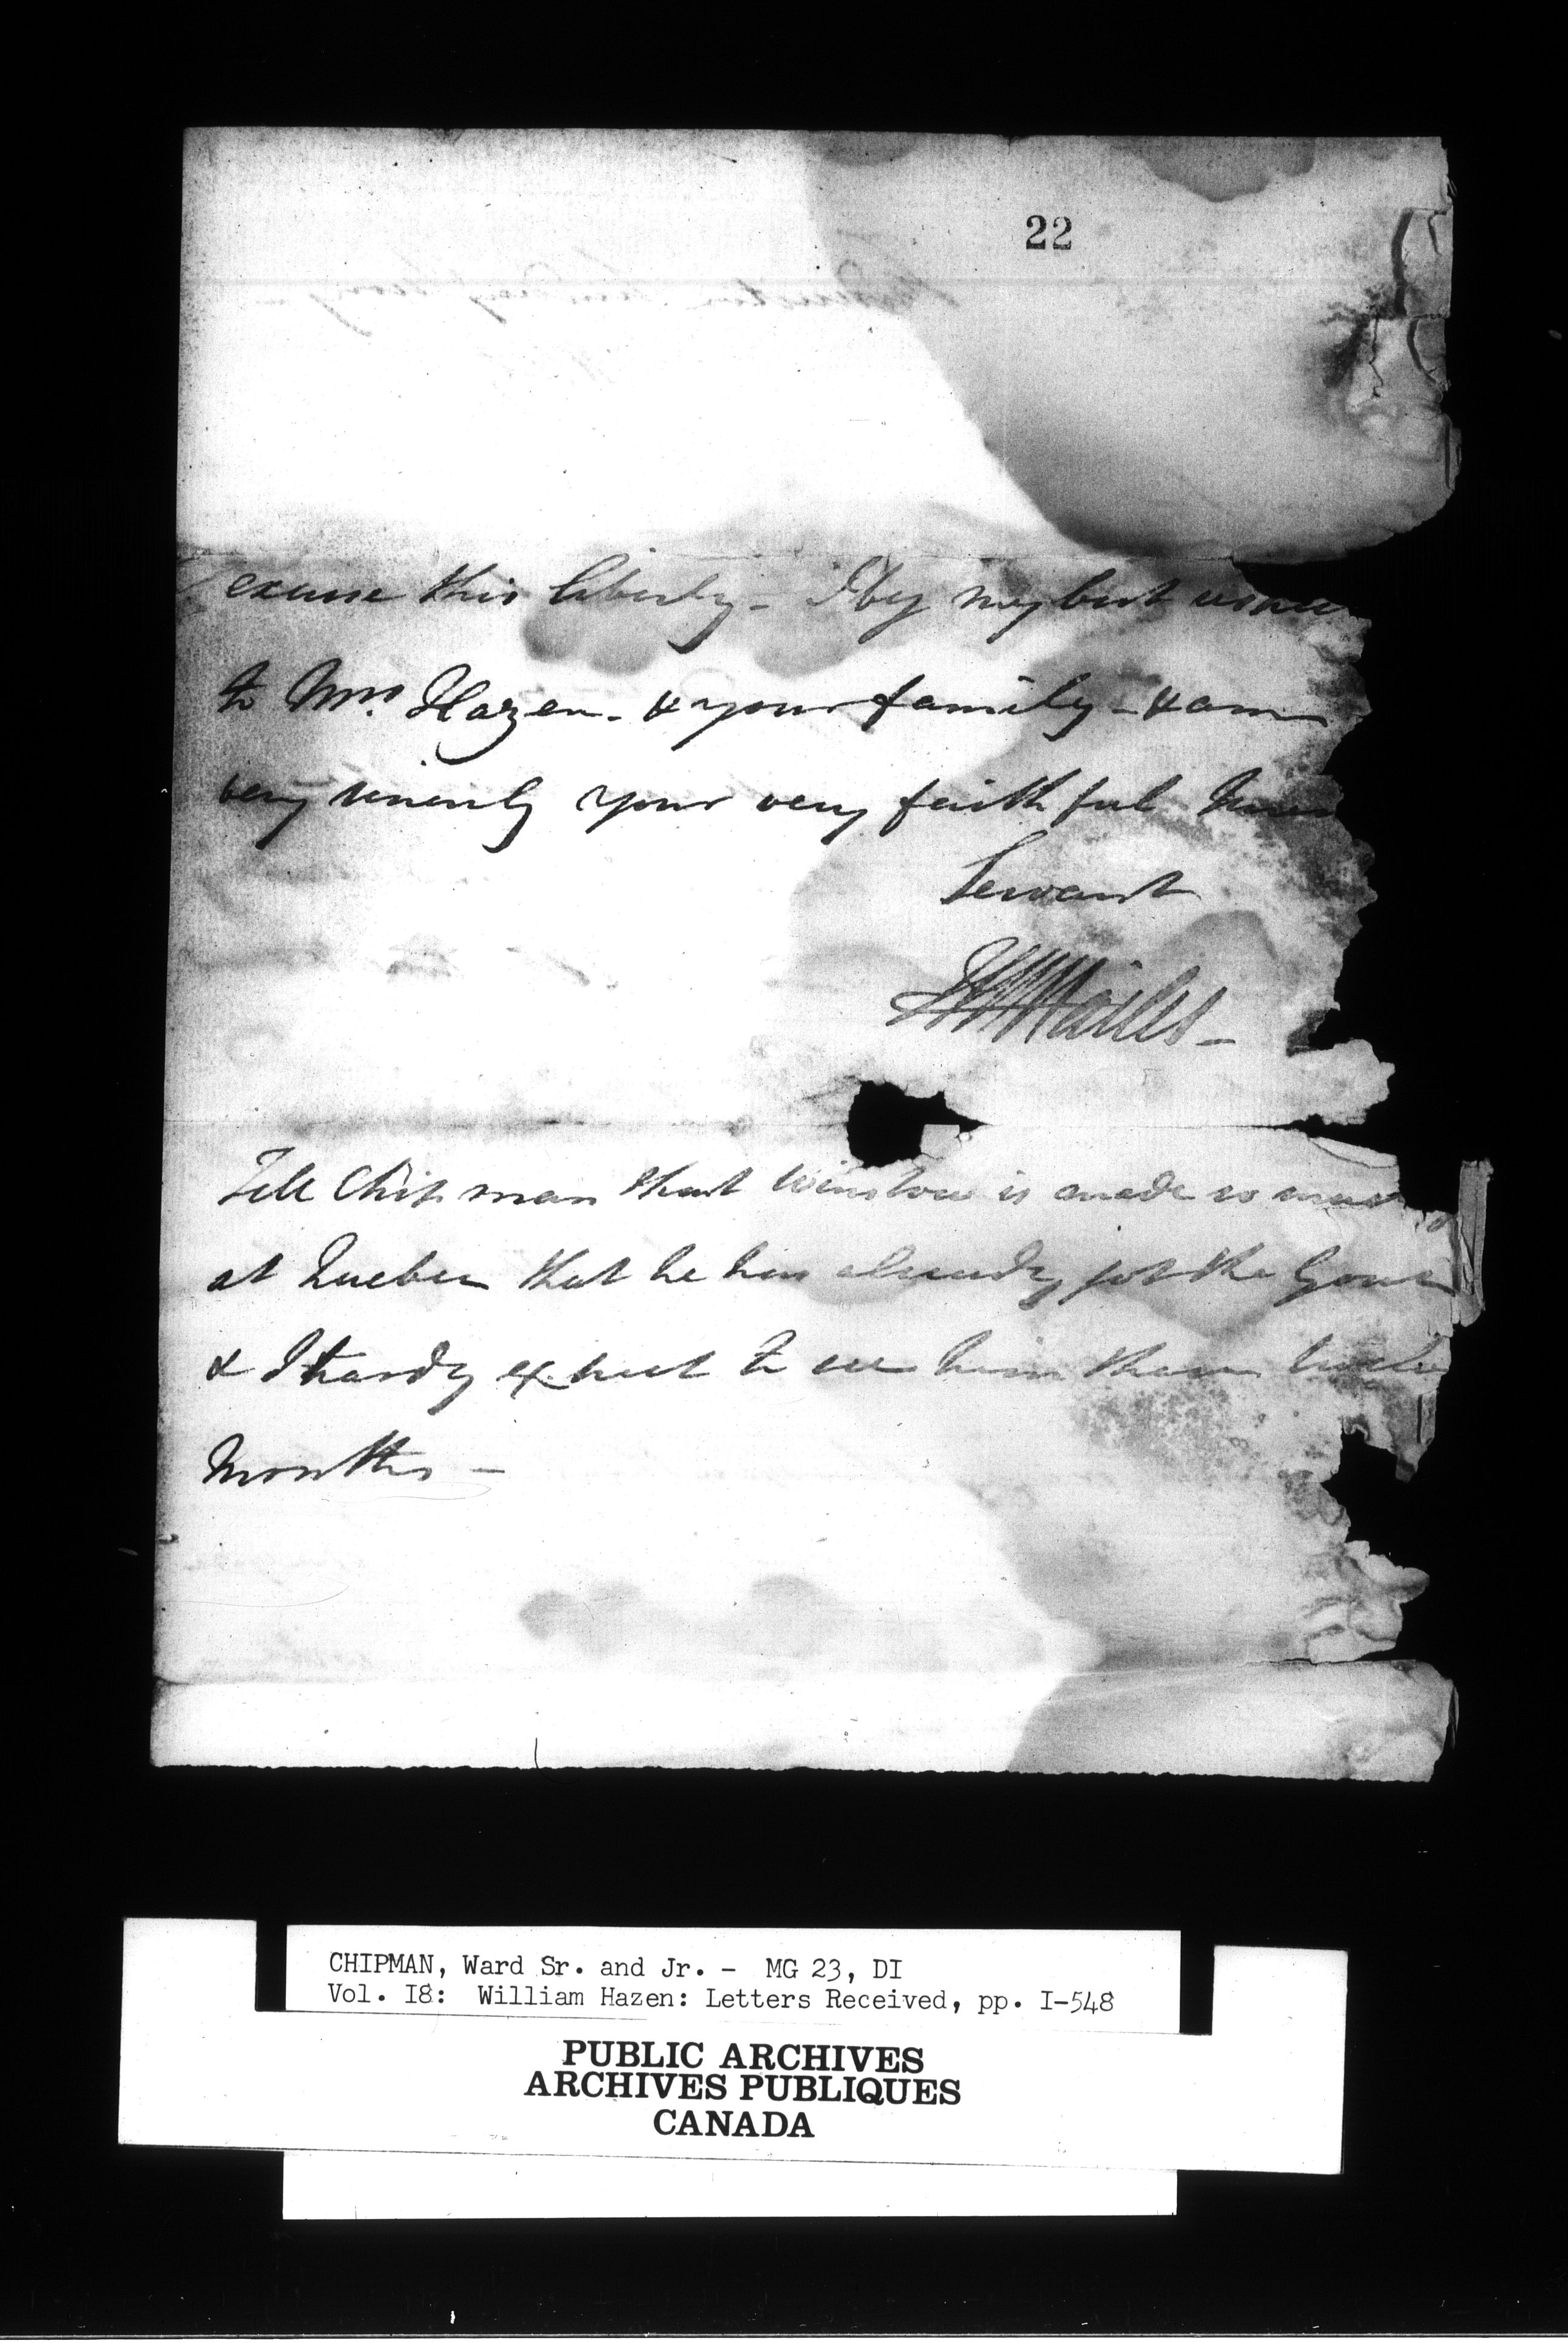 22
excuse this liberty - I beg my best
to Mrs. Hazen - & your family - & am
very sincerely your very faithful
Servant
Tell Chipman that Winslow is made so
at Quebec that he has already got the Gout
& I hardly expect to see him these twelve
Months -
CHIPMAN, Ward Sr. and Jr. - MG 23, DI
Vol. I8: William Hazen: Letters Received, pp. I-548
PUBLIC ARCHIVES
ARCHIVES PUBLIQUES
CANADA